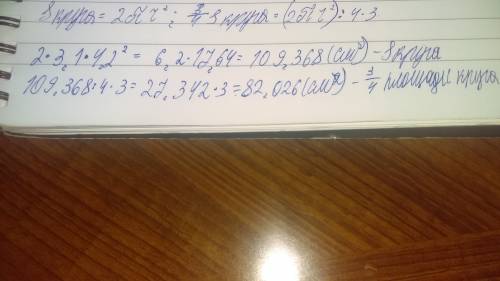 S круга = 2πr²; 3/4 S круга = (2πr²):4·3
2·3,1·4,2² = 6,2·17,64 = 109,368 (см²) - S круга
109,368:4·3 = 27,342·3 = 82,026 (см²) - 3/4 площади круга